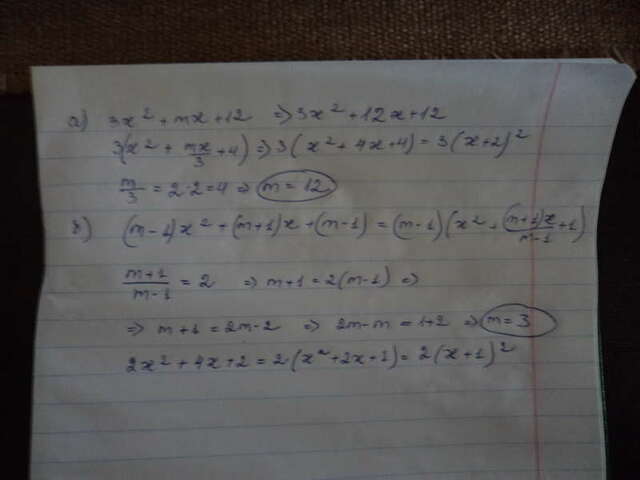 а) 3x² + mx + 12 => 3x² + 12x + 12
3(x² + mx/3 + 4) => 3(x² + 4x + 4) = 3(x+2)²
m/3 = 2·2 = 4 => m = 12
б) (m-1)x² + (m+1)x + (m-1) = (m-1)(x² + (m+1)x/m-1 + 1)
m+1/m-1 = 2 => m+1 = 2(m-1) =>
=> m+1 = 2m-2 => 2m-m = 1+2 => m = 3
2x² + 4x + 2 = 2(x² + 2x + 1) = 2(x+1)²